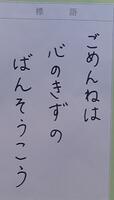 標語
ごめんねは
心のきずの
ばんそうこう